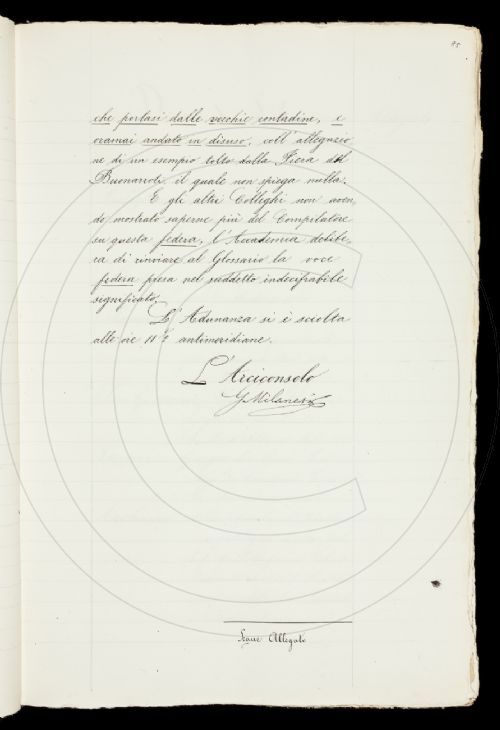 95
che portasi dalle vecchie contadine, e
oramai andato in disuso, coll'allegazio
ne di un esempio tolto dalla Fiera del
Buonarroti, il quale non spiega nulla.
E gli altri Colleghi non aven,
do mostrato saperne più del Compilatore
su questa federa, l'Accademia delibe,
ra di rinviare al Glossario la voce
federa presa nel suddetto indecifrabile
significato.
L'Adunanza si è sciolta
alle ore 11 ½ antimeridiane.
L'Arciconsolo
G. Milanesi
Segue Allegato